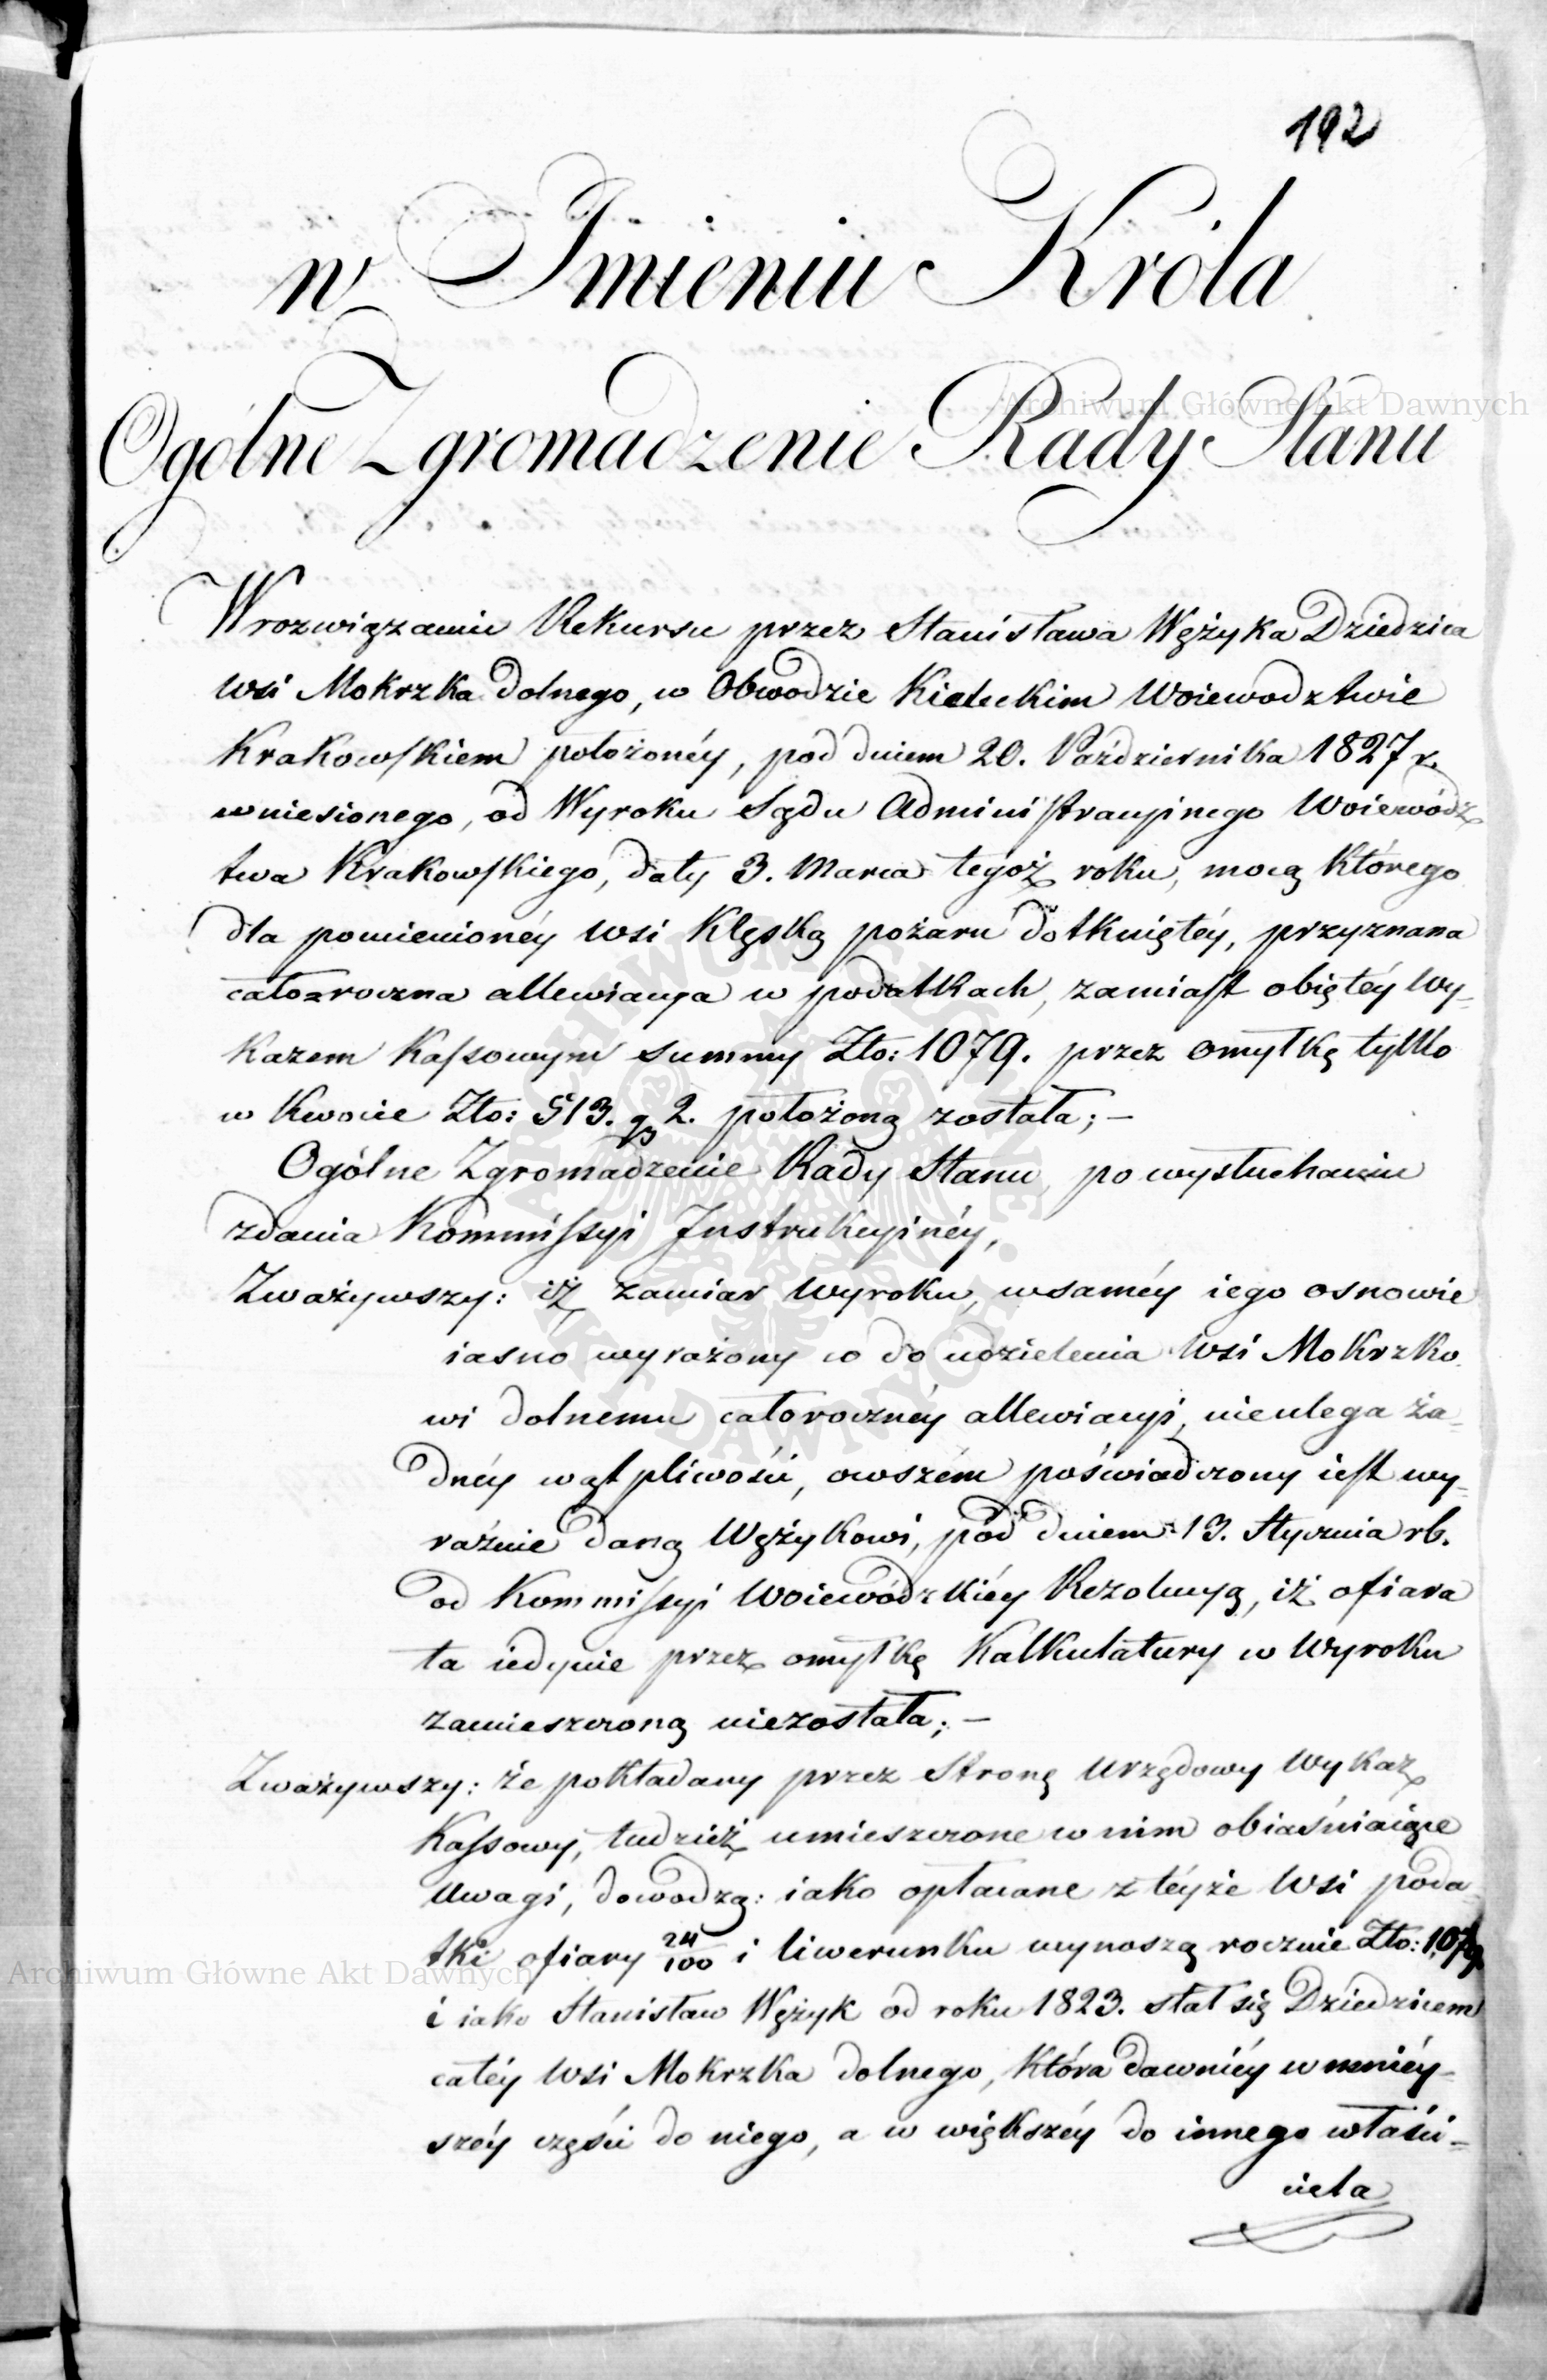 192
w Imieniu Króla
Ogólne Zgromadzenie Rady Stanu
W rozwiązaniu Rekursu przez Stanisława Wężyka Dziedzica
wsi Mokrzka dolnego, w Obwodzie Kieleckim Woiewodztwie
Krakowskiem położonéy, pod dniem 20. Października 1827 r.
wniesionego, od Wyroku Sądu Administracyinego Woiewódz
twa Krakowskiego, daty 3. Marca tegoż roku, mocą którego
dla pomienionéy wsi klęską pożaru dotkniętéy, przyznana
całoroczna allewiacya w podatkach, zamiast obiętéy wy-
kazem kassowym summy Złto: 1079. przez omyłkę tylko
w kwocie Złto: 513. g 2. położoną została; —
Ogólne Zgromadzenie Rady Stanu, po wysłuchaniu
zdania Kommissyi Instrukcyinéy,
Zważywszy: iż zamiar wyroku, w saméy iego osnowie
iasno wyrażony co do udzielenia wsi Mokrzko
wi dolnemu całorocznéy allewiacyi, nieulega ża-
dnéy wątpliwości, owszém poświadczony iest wy-
raźnie daną Wężykowi, pod dniem 13. Stycznia rb.
od Kommissyi Woiewódzkiéy Rezolucyą, iż ofiara
ta iedynie przez omyłkę Kalkulatury w Wyroku
zamieszczoną niezostała; —
Zważywszy: że pokładany przez Stronę Urzędowy Wykaz
Kassowy, tudzież umieszczone w nim obiaśniaiące
Uwagi, dowodzą: iako opłacane z téyże wsi poda
tki ofiary 24/100 i liwerunku wynoszą rocznie Złto: 1079
i iako Stanisław Wężyk od roku 1823. stał się Dziedzicem
całéy wsi Mokrzka dolnego, która dawniéy w mniéy-
széy części do niego, a w większéy do innego właści-
ciela
Archiwum Główne Akt Dawnych
Archiwum Główne Akt Dawnych
ARCHIWUM GŁÓWNE AKT DAWNYCH